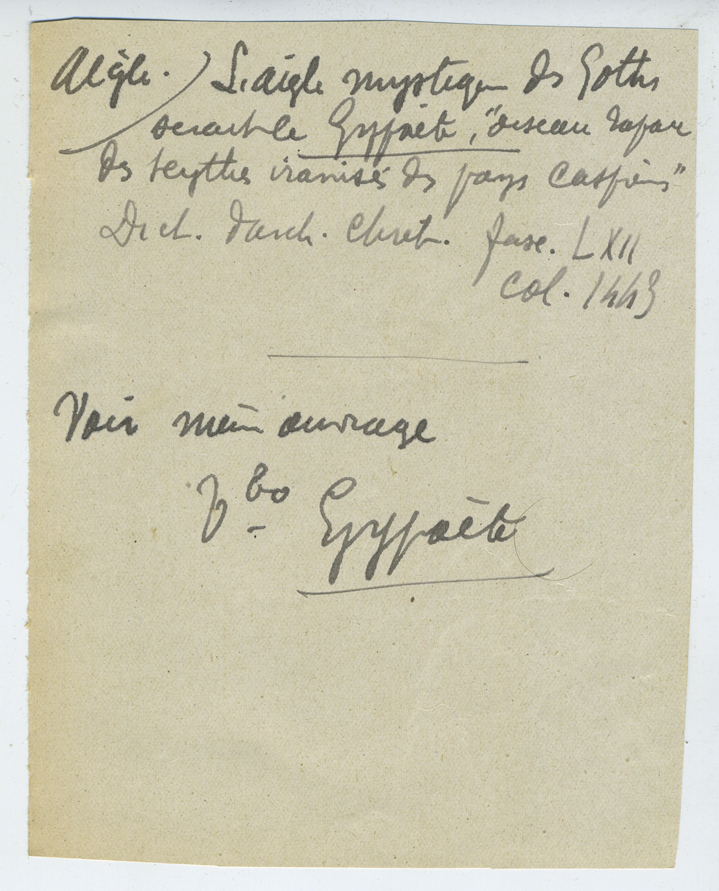 Aigle. L'aigle mystique des Goths
serait le Gypaète, "oiseau rapace
des scythes iranisés des pays caspiens"
Dict. d'arch. chret. fasc. LXII
col. 1443
Voir même ouvrage
Vbo Gypaète